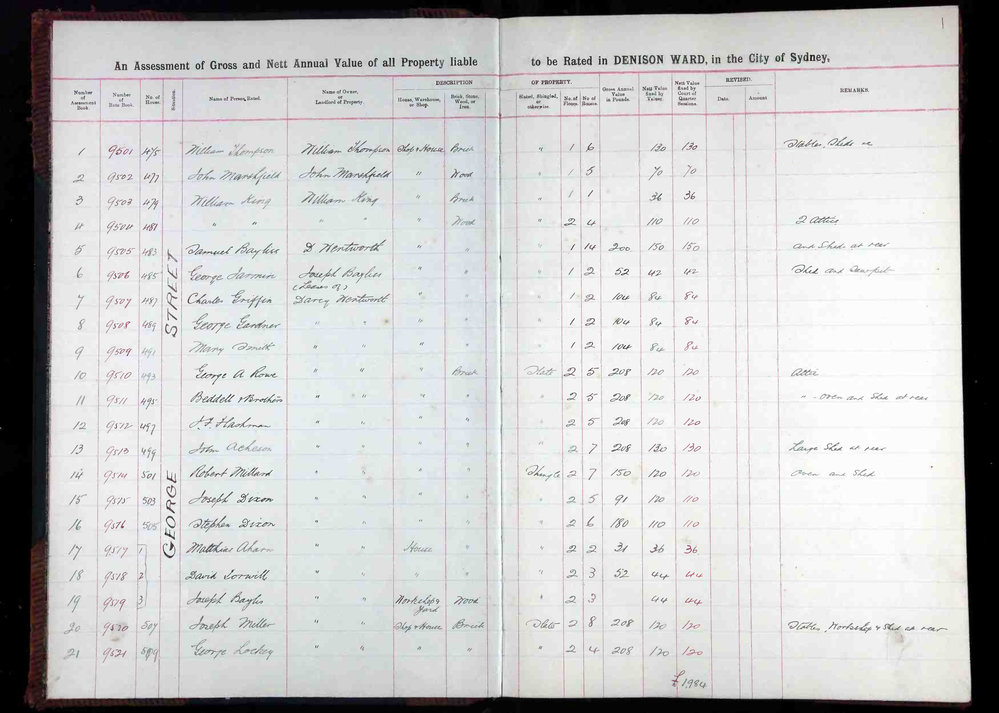 1
An Assessment of Gross and Nett Annual Value of all Property liable to be Rated in DENISON WARD, in the City of Sydney,
Number of Assessment Book. Number of Rate Book. No. of House. Situation. Name of Person, Rated. Name of Owner, or Landlord of Property. DESCRIPTION OF PROPERTY. House, Warehouse, or Shop. Brick, Stone, Wood, or Iron. Slated, Shingled, or otherwise. No. of Floors. No. of Rooms. Gross Annual Value in Pounds. Nett Value fixed by Valuer. Nett Value fixed by Court of Quarter Sessions. REVISED. Date. Amount. REMARKS.
GEORGE STREET
1 9501 475 William Thompson William Thompson Shop & House Brick " 1 6 130 130 Stables, Sheds &c
2 9502 477 John Marshfield John Marshfield " Wood " 1 5 70 70
3 9503 479 William King William King " Brick " 1 1 36 36
4 9504 481 " " " " " Wood " 2 4 110 110 2 Attics
5 9505 483 Samuel Bayliss D Wentworth " " " 1 14 200 150 150 and Sheds at rear
6 9506 485 George Jarmin Joseph Baylies " " " 1 2 52 42 42 Shed and
(Lessee of)
7 9507 487 Charles Griffen Darcy Wentworth " " " 1 2 104 84 84
8 9508 489 George Gardner " " " " " 1 2 104 84 84
9 9509 491 Mary Smith " " " " " 1 2 104 84 84
10 9510 493 George A Rowe " " " Brick Slate 2 5 208 120 120 Attic
11 9511 495 Beddell & Brothers " " " " " 2 5 208 120 120 " - oven and Shed at rear
12 9512 497 Flashman " " " " " 2 5 208 120 120
13 9513 499 John Acheson " " " " " 2 7 208 130 130 Large Shed at rear
14 9514 501 Robert Millard " " " " Shingle 2 7 150 120 120 oven and Shed
15 9515 503 Joseph Dixon " " " " " 2 5 91 120 110
16 9516 505 Stephen Dixon " " " " " 2 6 180 110 110
17 9517 1 Matthias Ahern " " House " " 2 2 31 36 36
18 9518 2 David " " " " " 2 3 52 44 44
19 9519 3 Joseph Baylis " " Workshop & Yard Wood " 2 3 44 44
20 9520 507 Joseph Meller " " Shop & House Brick Slate 2 8 208 120 120 Stables, Workshop & Shed at rear
21 9521 509 George Lockey " " " " " 2 4 208 120 120
£ 1984